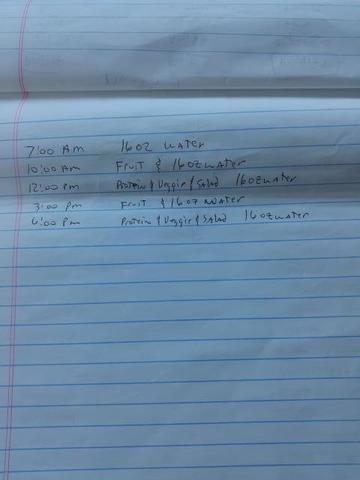 7:00 Am 16oz water
10:00 Am Fruit & 16oz water
12:00 pm Protein & Veggie & Salad 16oz water
3:00 pm Fruit & 16oz water
6:00 pm Protein & Veggie & Salad 16oz water